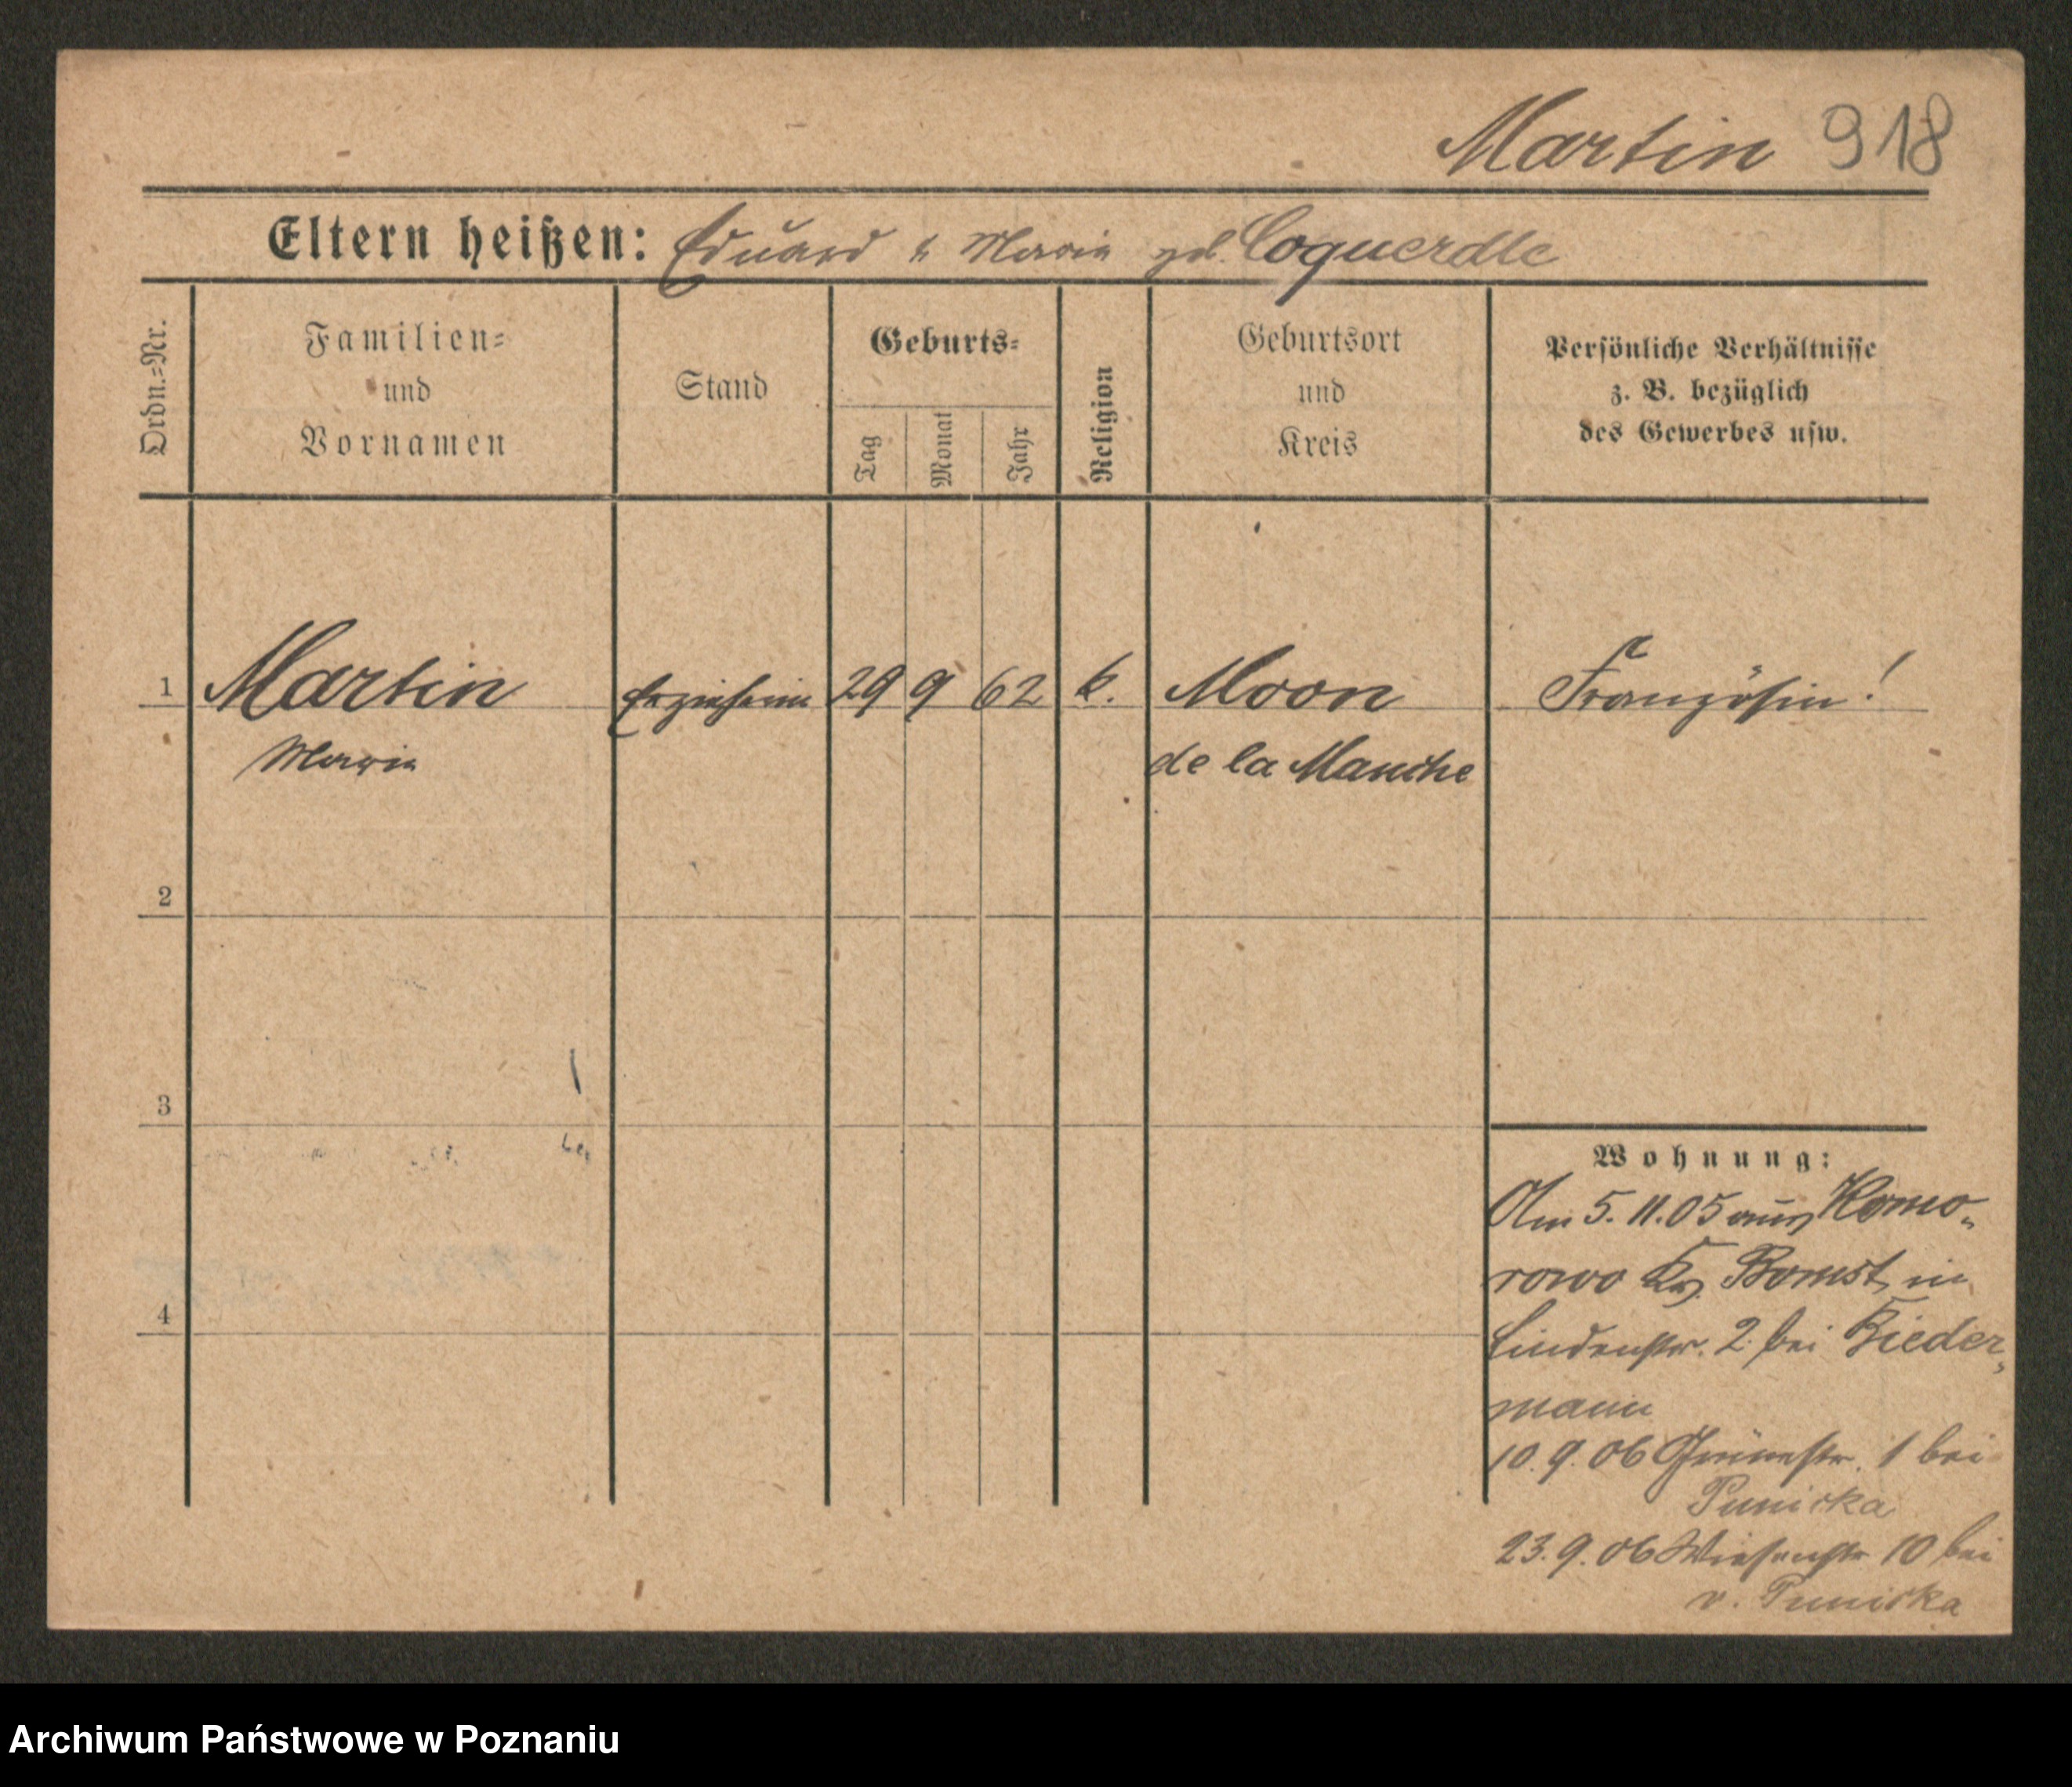 Martin 918
Eltern heißen: Eduard u Maria geb. Coquerdle
Ordn.-Nr.
Familien-
und
Vornamen
Stand
Geburts-
Tag
Monat
Jahr
Religion
Geburtsort
und
Kreis
Persönliche Verhältnisse
z. B. bezüglich
des Gewerbes usw.
1 Martin Erzieherin 29 9 62 k. Moon Französin!
Maria de la Manche
2
3
Wohnung:
Am 5.11.05 aus Komo-
rowo Kr. Bomst in
4
Lindenstr. 2. bei Bieder-
mann
10.9.06 Grünestr. 1 bei
23.9.06 Wiesenstr 10 bei
v.
Archiwum Państwowe w Poznaniu